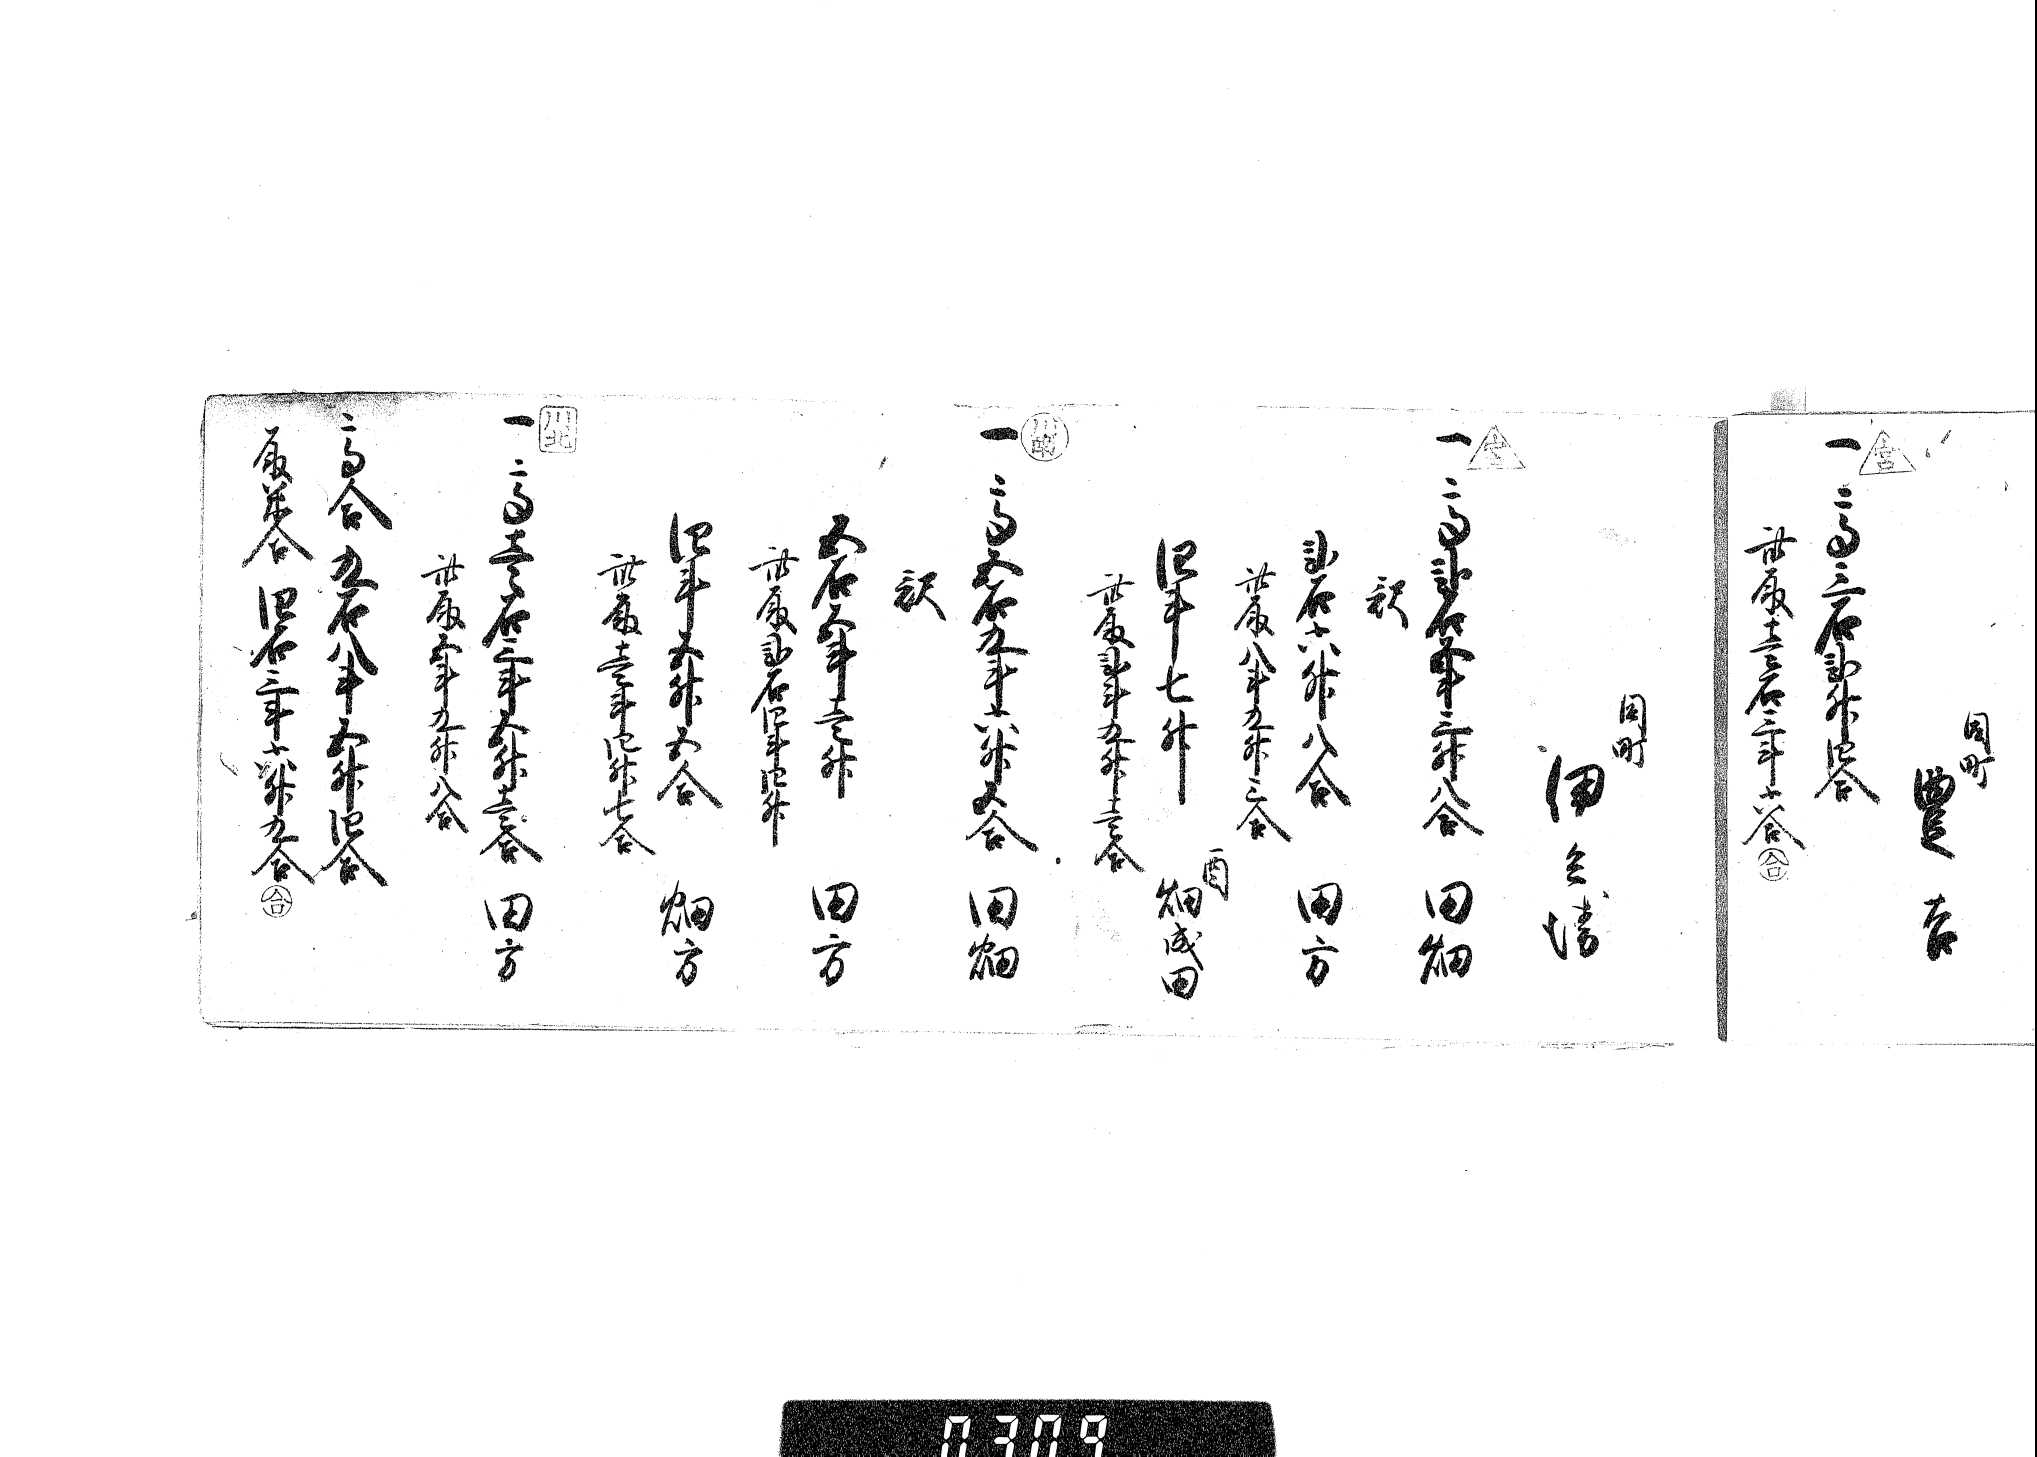 同町
豊吉
宮
一高三石弐升四合
此取壱石三斗六合 合
同町
宮
一高弐石五斗三升八合 田畑
訳
弐石六升八合 田方
此取八斗九升三合
四斗七升 酉畑成田
此取弐斗九升壱合
川南
一高五石九斗六升五合 田畑
訳
五石五斗壱升 田方
此取弐石四斗四升
四斗五升五合 畑方
此取壱斗四升七合
川北
一高壱石三斗五升壱合 田方
此取五斗九升八合
高合九石八斗五升四合
取米合四石三斗六升九合 合
0309